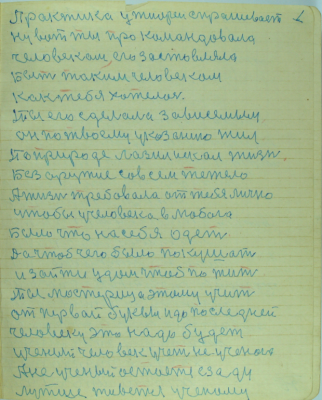 Практика у теории спрашивает
ну вот ты про командовала
человеком его заставляла
Быть таким человеком
Как тебя хотелось.
Ты его сделала зависемым
он потвоему указанию жил
По природе лазил искал жизн.
Без оружие совсем тежело
А жизн требовала от тебя лично
чтобы у человека в любога
Было что на себя одеть
Да чтоб чего было покушать
и зайти у дом чтоб по жить
Ты мастерица этому учит
от первай буквы и до последней
человеку это надо будет
ученый человек учет не ученога
А не ученый остается сзади
лутше живется ученому